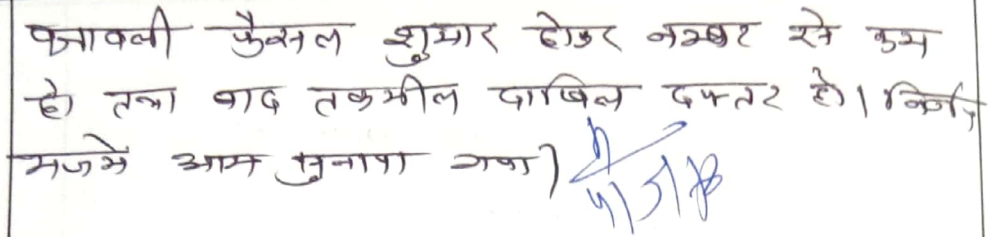 पत्रावली फैसल शुमार होकर नम्बर से कम
हो तथा बाद तकमील दाखिल दफ्तर हो। निर्णय
मजमे आम सुनाया गया।